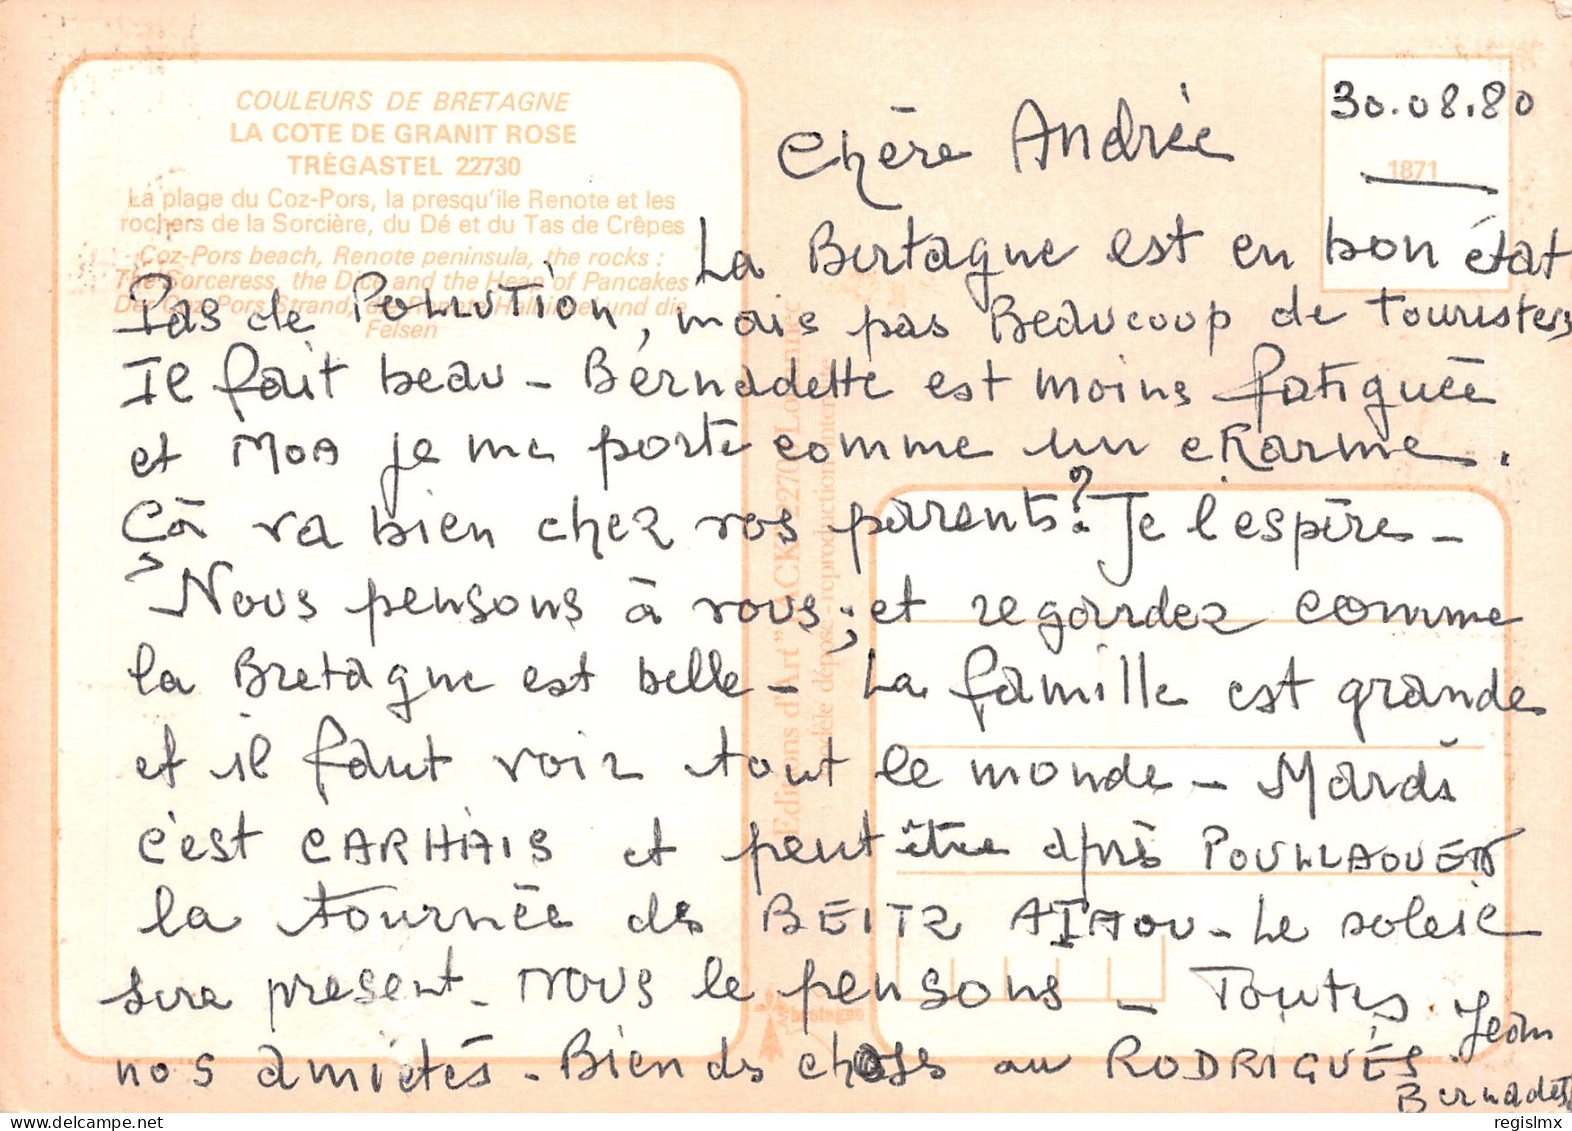 COULEURS DE BRETAGNE
LA COTE DE GRANIT ROSE
TRÉGASTEL 22730
La plage du Coz-Pors, la presqu'ile Renote et les
rochers de la Sorcière, du Dé et du Tas de Crêpes
Coz-Pors beach, Renote peninsula, the rocks :
The Sorceress, the Dice and the Heap of Pancakes
Der Coz-Pors Strand, und die
Felsen
30.08.80
1871
Chère Andrée
La Bertagne est en bon état
Pas de POLLUTION, mais pas Beaucoup de Touristes
Il fait beau - Bernadette est moins fatiguée
et MOA je me porte comme un charme.
Cà va bien chez vos parents? Je l'espère -
Nous pensons à vous; et regardez comme
la Bretagne est belle - La famille est grande
et il faut voir tout le monde - Mardi
c'est CARHAIS et peut être après POULLAOUEN
la tournée des BEITZ ATAOU - Le soleil
sera présent - nous le pensons - Toutes
nos amietés - Biends choses au RODRIGUÈS. Jean
Bernadet
Editions d'Art "JACK" 2270 Louannec
modèle déposé - reproduction
bretagne
regislmx